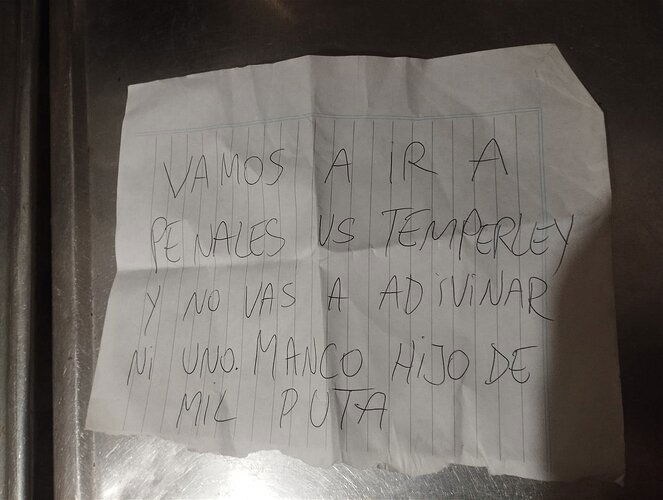 VAMOS A IR A
PENALES VS TEMPERLEY
Y NO VAS A ADIVINAR
NI UNO. MANCO HIJO DE
MIL PUTA